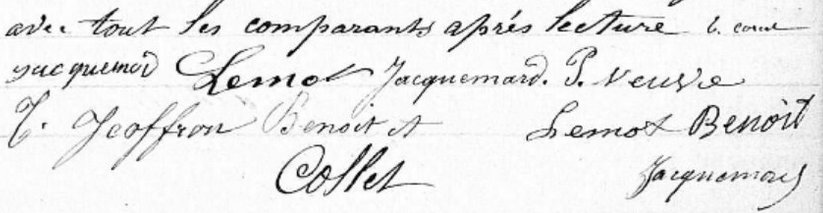 avec tout les comparants aprés lecture
Jacquemard Lemot Jacquemard. P. veuve
T. Jeoffron Benoit A Lemot Benoit
Collet Jacquemard